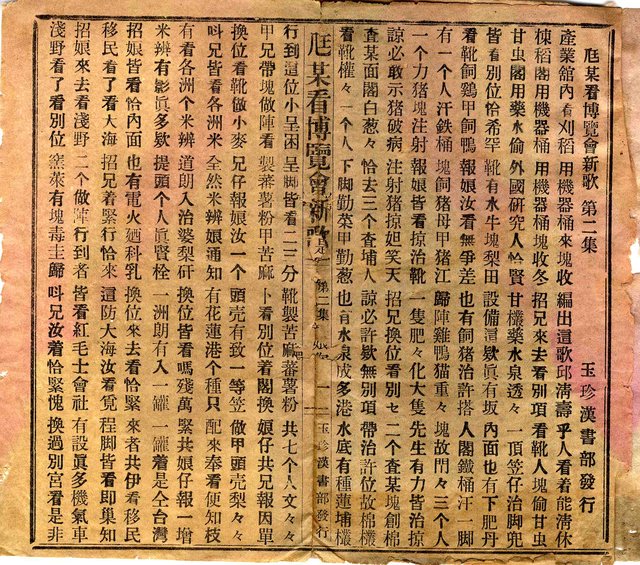 尫某看博覽會新歌 第二集 玉珍漢書部發行
產業舘內看刈稻 用機器桶來塊收 編出這歌邱清壽 乎人看着能清休
棟稻閣用機器桶 用機器桶塊收冬 招兄來去看別項 看靴人塊偷甘虫
甘虫閣用藥水偷 外國研究人恰賢 甘欉藥水泉透々 一頂笠仔治脚兜
皆看別位恰希罕 靴有水牛塊梨田 設備這欵眞有坂 內面也有下肥丹
看靴飼鷄甲飼鴨 報娘汝看無爭差 也有飼猪治許搭 人閣鐵桶汗一脚
有一个人汗鉄桶 塊飼猪母甲猪江 歸陣雞鴨猫重々 塊故門々三个人
一个力猪塊注射 報娘皆看掠治靴 一隻肥々化大隻 先生有力皆治掠
諒必敢示猪破病 注射猪掠妲笑天 招兄換位看別セ 二个查某塊創棉
查某面閣白葱々 恰去三个查埔人 諒必許欵無別項 帶治許位故棉欉
看靴欉々一个人 下脚勤菜甲勤葱 也有水泉成多港 水底有種蓮埔欉
尫某看博覽會新歌 第二集 玉珍漢書部發行
行到這位小呈困 呈脚皆看二三分 靴製苦麻蕃薯粉 共七个人文々々
甲兄帶塊做陣看 製蕃薯粉甲苦麻 卜看別位着閣換 娘仔共兄報因單
換位看靴做小麥 兄仔報娘汝一个 頭壳有致一等笠 做甲頭壳梨々々
呌兄皆看各洲米 全然米辨娘通知 有花蓮港个種只 配來奉看便知枝
有看各洲个米辨 道朗入治婆梨矸 換位皆看嗎殘萬 緊共娘仔報一增
米辨有影眞多欵 提頭个人眞賢栓 一洲朗有入一罐 一罐着是仝台灣
招娘皆看恰內面 也有電火廼科乳 換位來去看恰緊 來者共伊看移民
移民看了看大海 招兄着緊行恰來 這防大海汝看覔 程脚皆看即巢知
招娘來去看淺野 二个做陣行到者 皆看紅毛士會社 有設眞多機氣車
淺野看了看別位 窯萊有塊毒主歸 呌兄汝着恰緊愧 換過別宮看是非